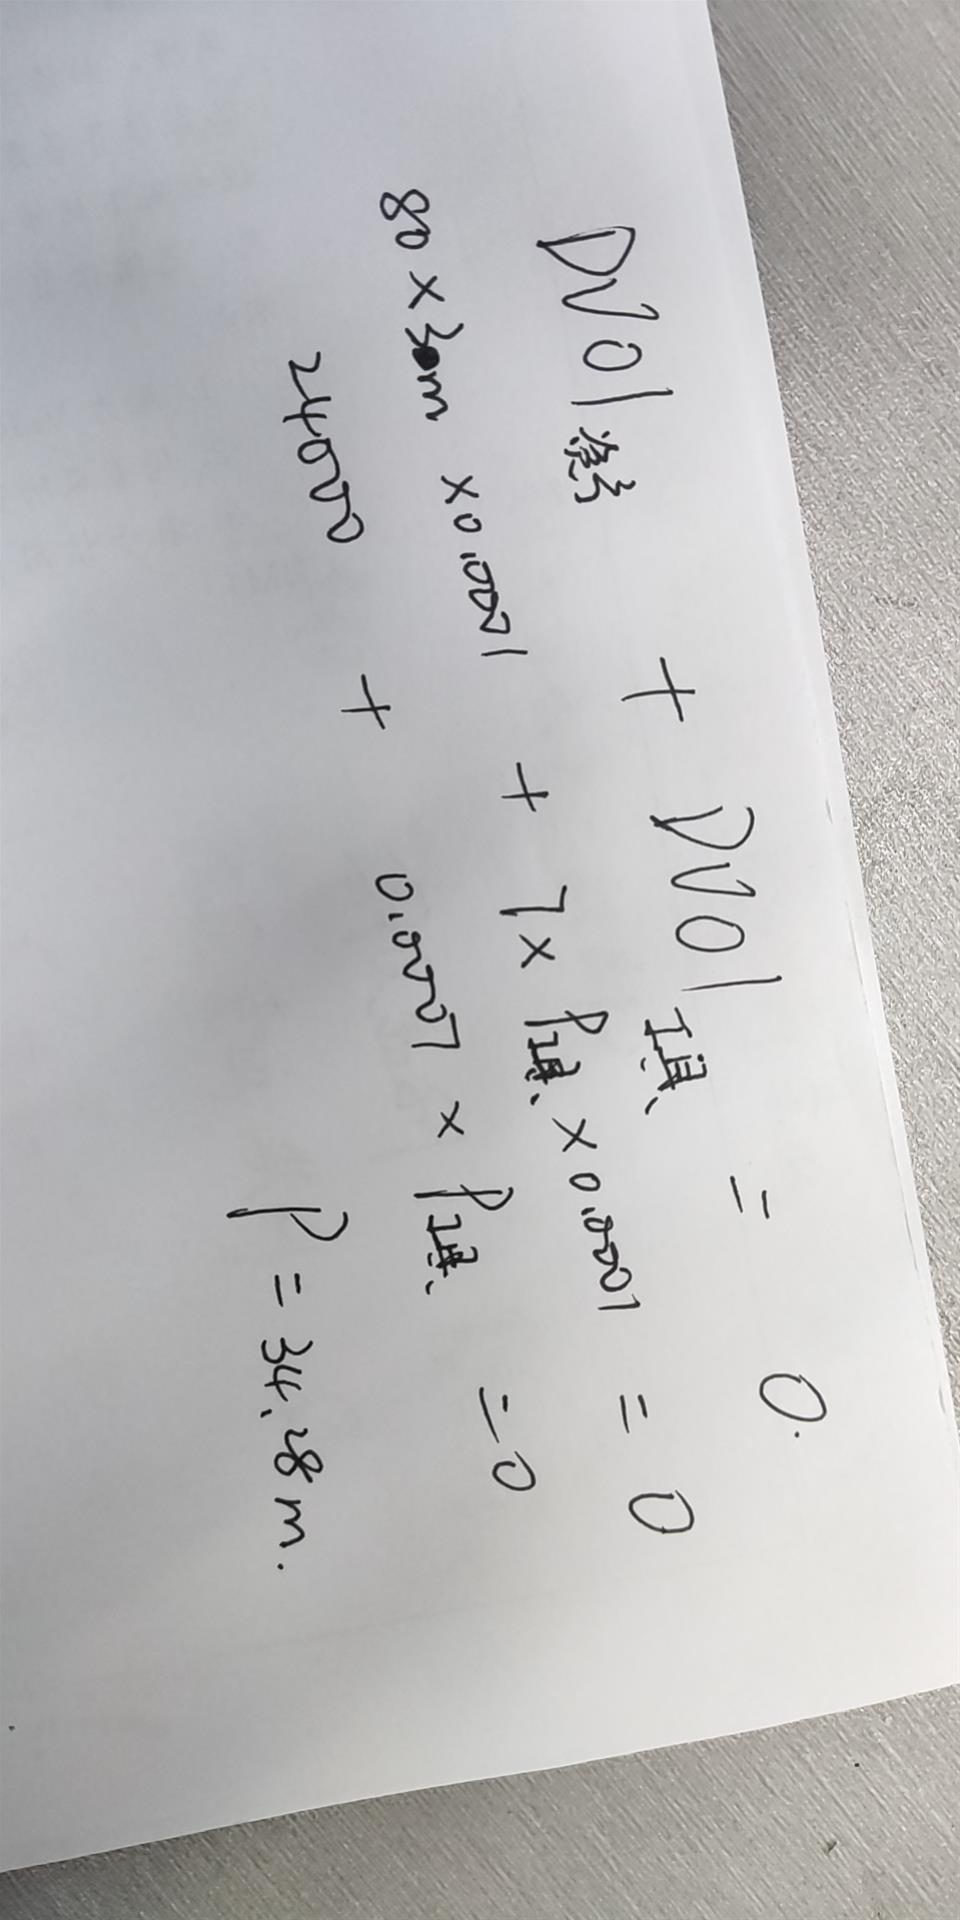 DV01 债券 + DV01 工具 = 0.
80 × 30m × 0.0001 + 7 × P工具 × 0.0001 = 0
24000 + 0.0007 × P工具 = 0
P = 34.28m.